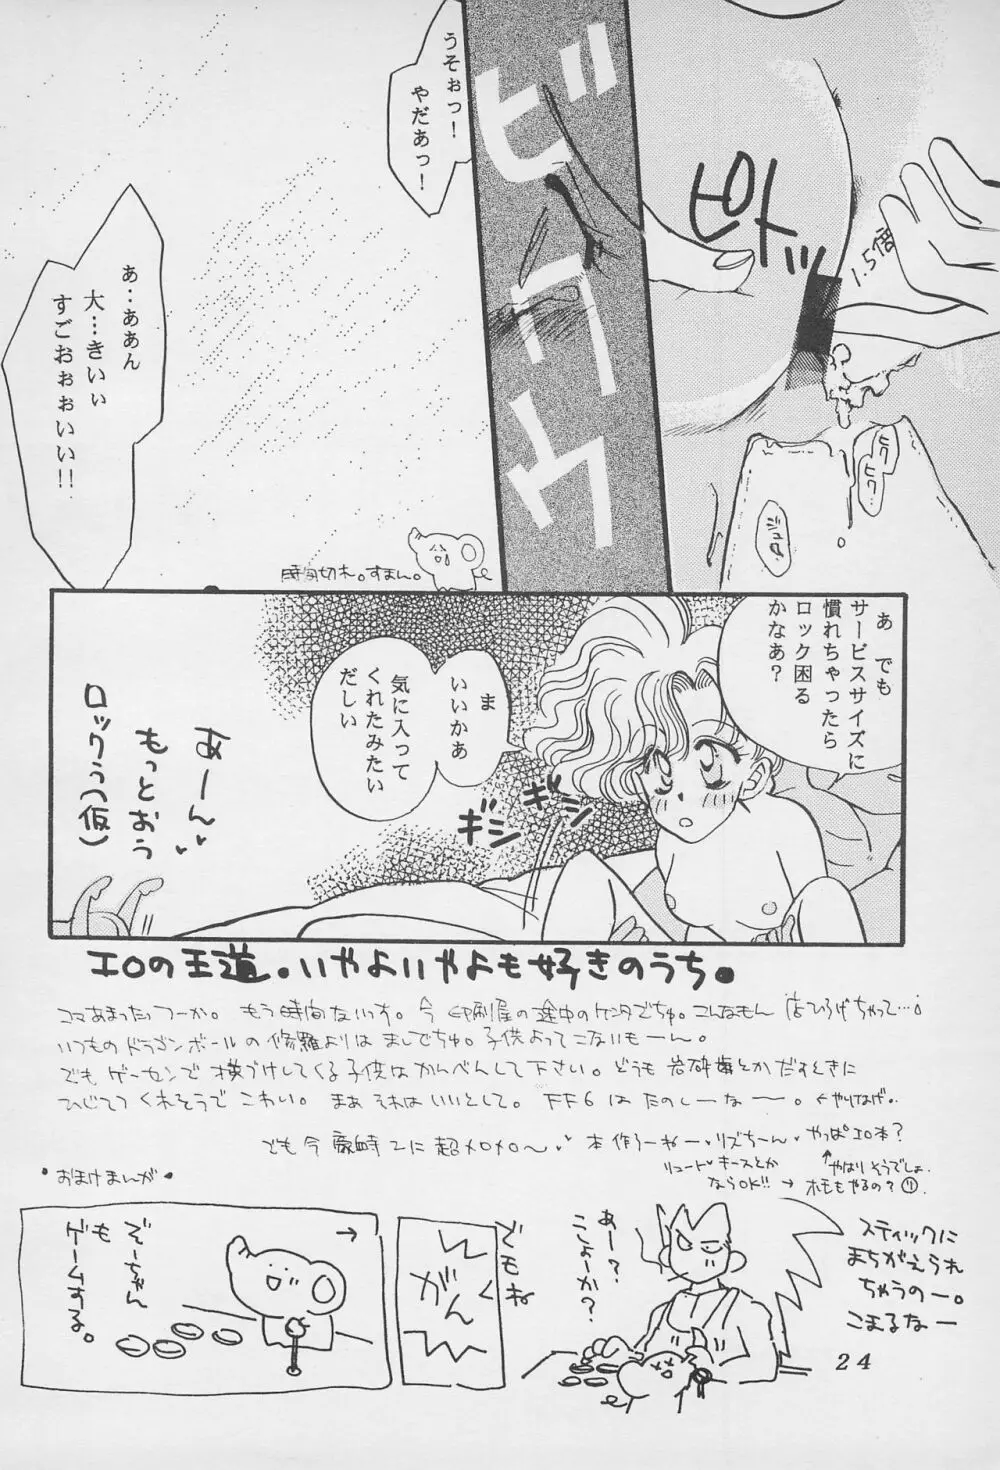 ピトッ
1.5倍
ヒク
ヒク
ジュ
ビクゥ
うそぉっ!
やだあっ!
あ‥ああん
大…きいぃ
すごおぉぉいい!!
時間切れ。すまん。
あ でも
サービスサイズに
慣れちゃったら
ロック困る
かなあ?
ま
いいかあ
気に入って
くれたみたい
だしい
ギシ
ギシ
あーん
もっとおう
ロックぅ(仮)
エロの王道。いやよいやよも好きのうち。
コマあまったっつーか。もう時間ないっす。今 印刷屋の途中のケンタでちゅ。こんなもん
いつものドラゴンボールの修羅よりはましでちゅ。子供よってこないもーん。
でもゲーセンで横づけしてくる子供はかんべんして下さい。どうも
ひじてつくれそうでこわい。まぁそれはいいとして。FF6はたのしーなー。←やりなげ。
でも今 に超メロメロ〜 本作ろーねー・リズちーん やっぱエロ本?
リュート・キースとか
ならOK!!→
↑やはりそうでしょ。
ホモもやるの?
おまけまんが
→
ぞーちゃん
も
ゲームする。
がんっ
でもね
あー?
こしょーか?
スティックに
まちがえられ
ちゃうのー。
こまるなー
24